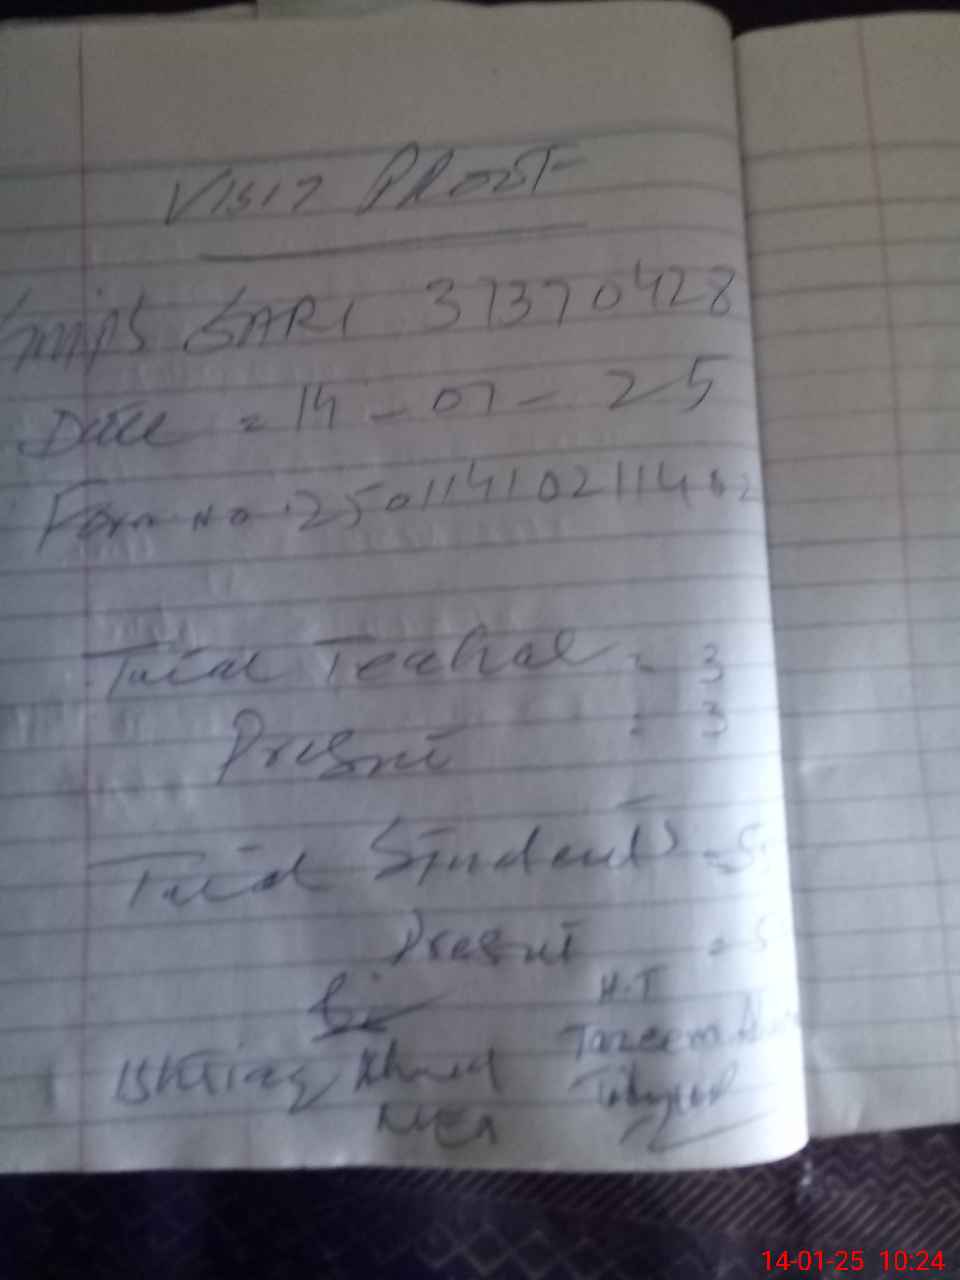 VISIT PROOF
GMPS SARI 37370428
Date = 14 - 01 - 25
Form No. 25011410211402
Total Teacher = 3
Present = 3
Total Students =
Present =
H.T
Ishtiaq Ahmed Tazeem
14-01-25 10:24